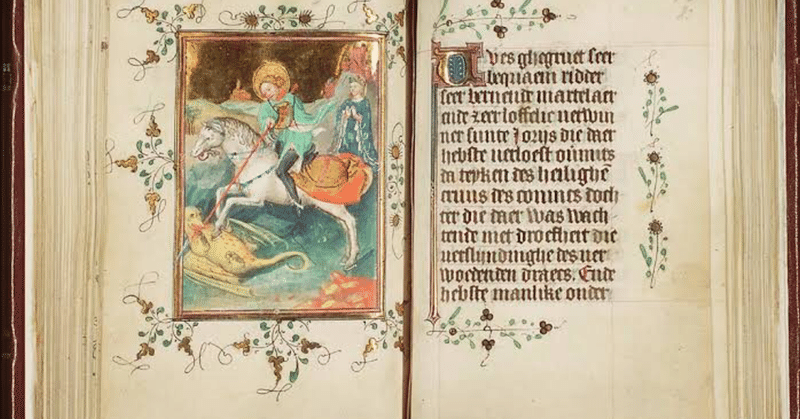 Wes ghegruet seer
bequaem ridder
seer bernende martelaer
ende zeer loffelic verwin
ner sunte Jorijs die daer
hebste verloest oũmits
da teyken des heilighē
cruus des conincs doch
ter die daer was wach
tende met droefheit die
verslindinghe des ver
woedenden draecs. Ende
hebste manlike onder